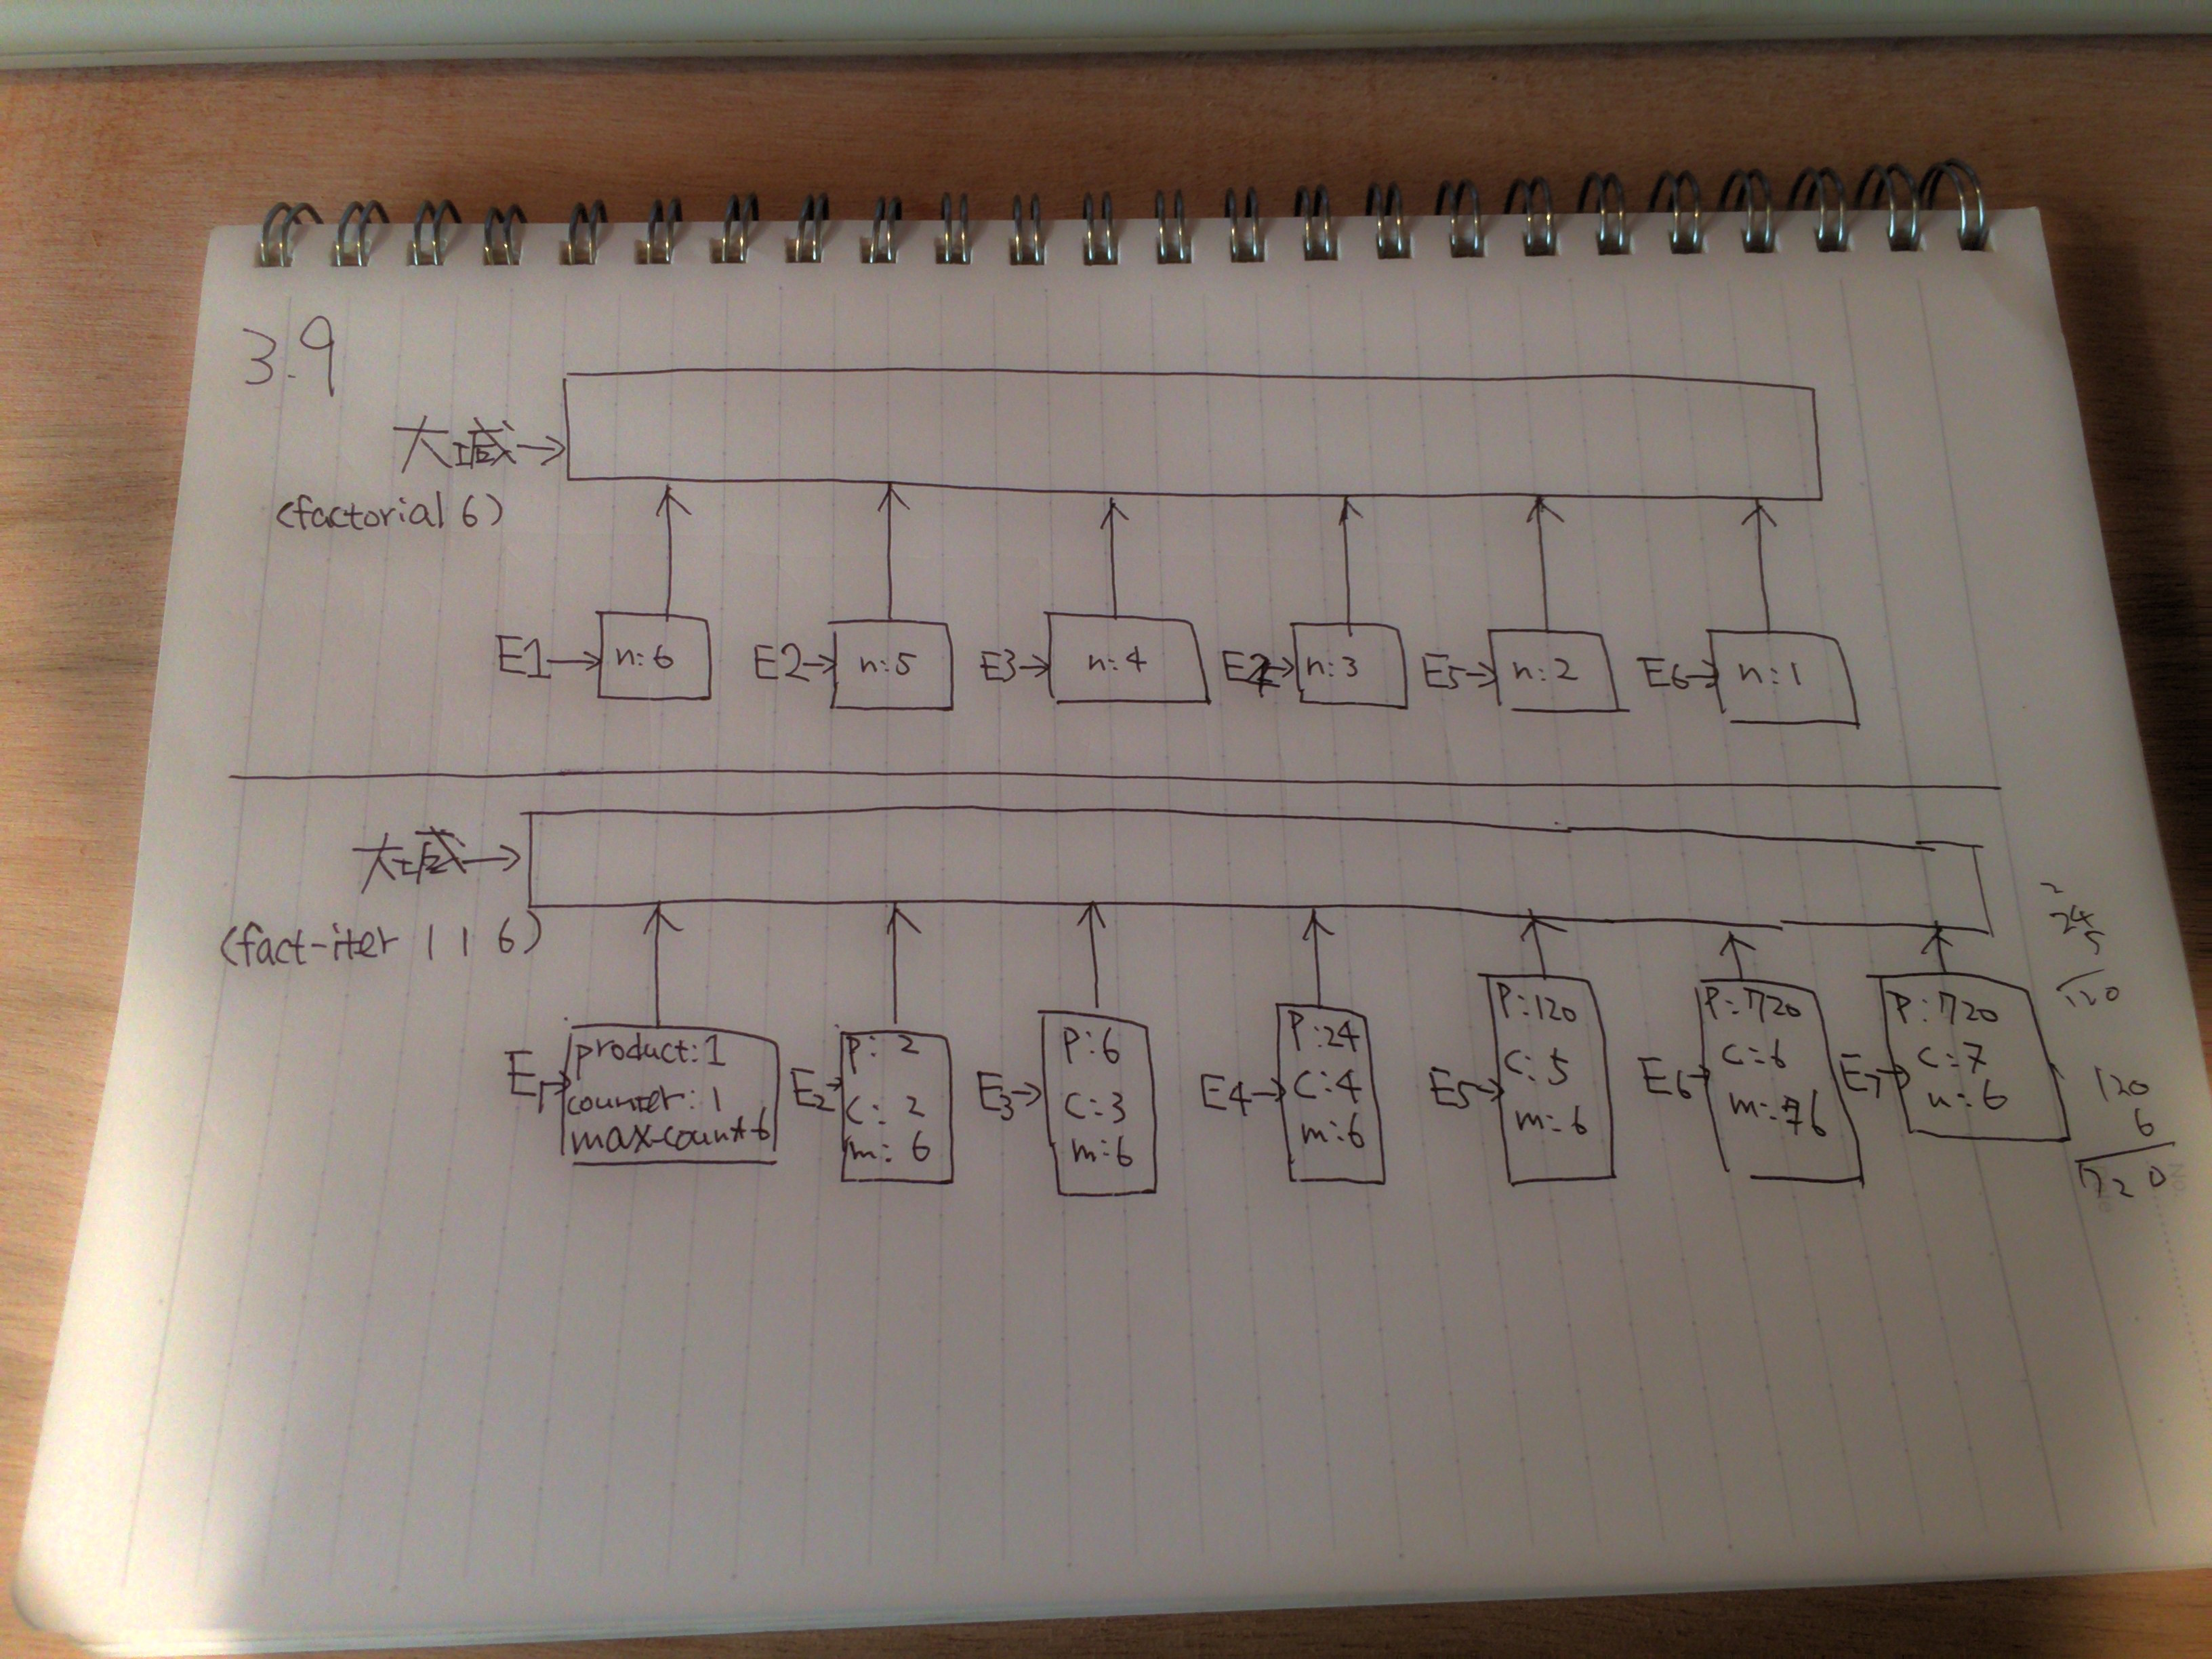 3.9
大域→
(factorial 6)
E1→ n:6
E2→ n:5
E3→ n:4
E4→ n:3
E5→ n:2
E6→ n:1
大域→
(fact-iter 1 1 6)
E1→
product:1
counter:1
max-count 6
E2→
P: 2
C: 2
m: 6
E3→
P:6
C:3
m:6
E4→
P:24
C:4
m:6
E5→
P:120
C:5
m:6
E6→
P:720
C:6
m:6
E7→
P:720
C:7
n:6
2
24
5
120
120
6
720